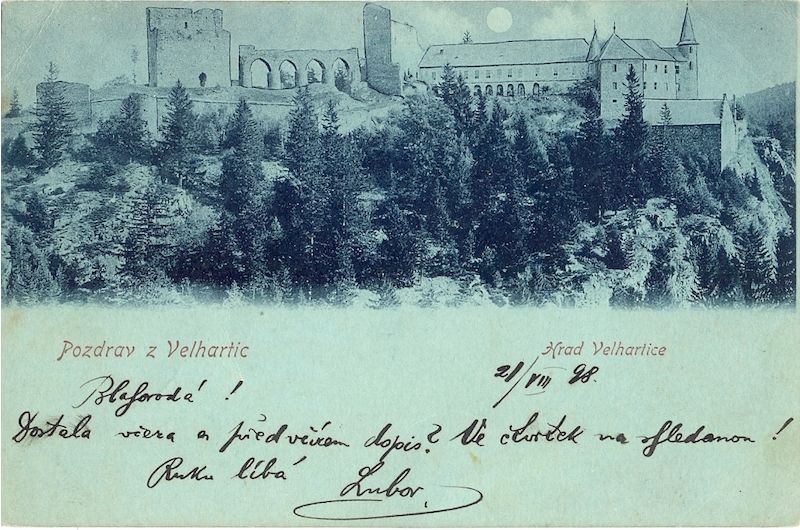 Pozdrav z Velhartic
Hrad Velhartice
21/VIII 98.
Blahorodá!
Dostala včera a předvčírem dopis? Ve čtvrtek na shledanou!
Ruku líbá Lubor.